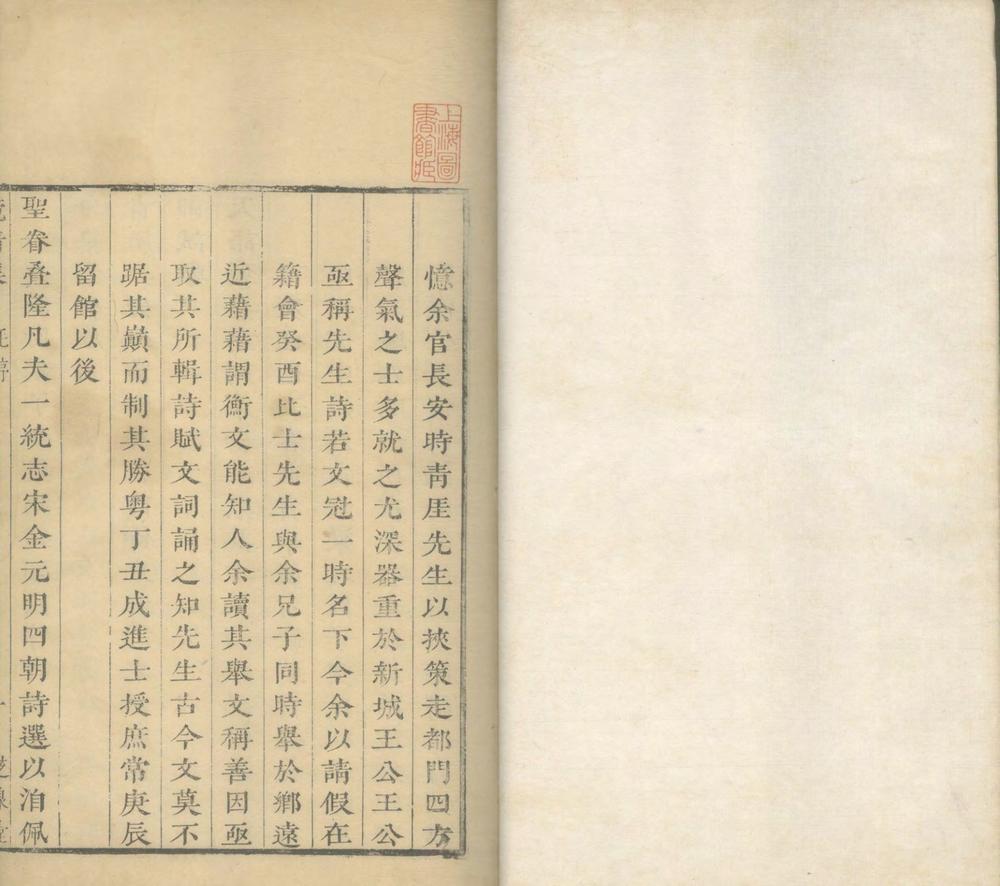 上海圖
書館藏
憶余官長安時靑厓先生以挾策走都門四方
聲氣之士多就之尤深器重於新城王公王公
亟稱先生詩若文冠一時名下今余以請假在
籍會癸酉比士先生與余兄子同時舉於鄕遠
近藉藉謂衡文能知人余讀其舉文稱善因亟
取其所輯詩賦文詞誦之知先生古今文莫不
踞其巔而制其勝粤丁丑成進士授庶常庚辰
留館以後
聖眷叠隆凡夫一統志宋金元明四朝詩選以洎佩